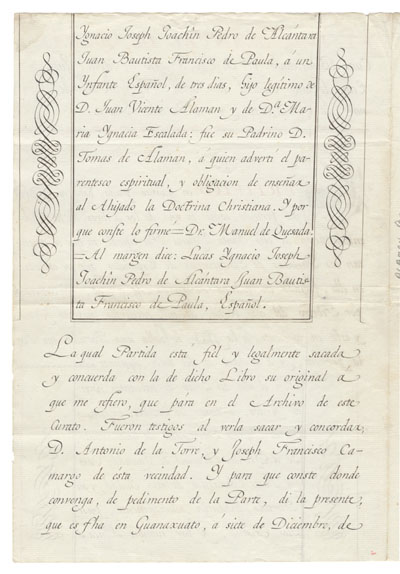 Ygnacio Joseph Joachîn Pedro de Alcántara
Juan Bautista Francisco de Paula, á un
Ynfante Español, de tres dias, hijo legítimo de
D. Juan Vicente Alaman y de D.ª Ma-
ria Ygnacia Escalada: fue su Padrino D.
Tomas de Alaman, á quien advertí el pa-
rentesco espiritual, y obligacion de enseñar
al Ahijado la Doctrina Christiana. Y por
que conste lo firmé = Dr. Manuel de Quesada.
= Al margen dice: Lucas Ygnacio Joseph
Joachîn Pedro de Alcántara Juan Bautis-
ta Francisco de Paula, Español.
La qual Partida está fiel y legalmente sacada
y concuerda con la de dicho Libro su original a
que me refiero, que pára en el Archivo de este
Curato. Fueron testigos al verla sacar y concordar
D. Antonio de la Torre, y Joseph Francisco Ca-
margo de ésta vecindad. Y para que conste donde
convenga, de pedimento de la Parte, di la presente,
que es fha en Guanaxuato, á siete de Diciembre, de